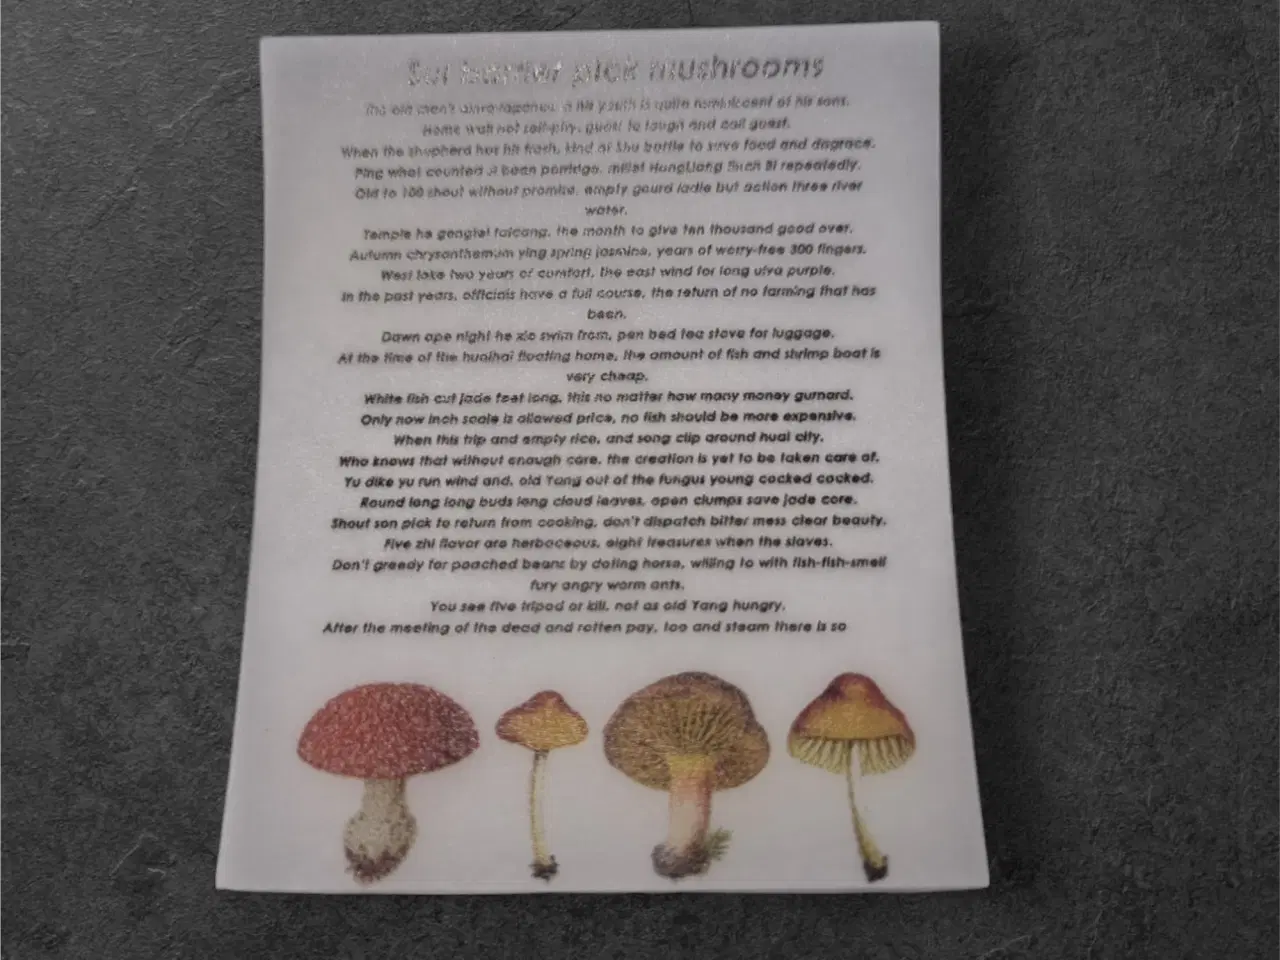 pick mushrooms
his youth is quite reminiscent of his sons.
Home wall not self-pity, guest to laugh and call guest.
When the shepherd has his fresh, kind of Shu bottle to save food and disgrace.
Ping what counted a bean porridge, millet HongLiang Such Bi repeatedly.
Old to 100 shout without promise, empty gourd ladle but action three river
water.
Temple he the month to give ten thousand good over.
Autumn chrysanthemum ying spring jasmine, years of worry-free 300 fingers.
West lake two years of comfort, the east wind for long ulva purple.
In the past years, officials have a full course, the return of no farming that has
been.
Dawn ape night he xlc swim from, pen bed tea stove for luggage.
At the time of the huaihai floating home, the amount of fish and shrimp boat is
very cheap.
White fish cut jade feet long, this no matter how many money gurnard.
Only now inch scale is allowed price, no fish should be more expensive.
When this trip and empty rice, and song clip around huai city.
Who knows that without enough care, the creation is yet to be taken care of.
Yu dike yu run wind and, old Yang out of the fungus young cocked cocked.
Round long long buds long cloud leaves, open clumps save jade core.
Shout son pick to return from cooking, don't dispatch bitter mess clear beauty.
Five zhi flavor are herbaceous, eight treasures when the slaves.
Don't greedy for poached beans by doting horse, willing to with fish-fish-smell
fury angry worm ants.
You see five tripod or kill, not as old Yang hungry.
After the meeting of the dead and rotten pay, too and steam there is so